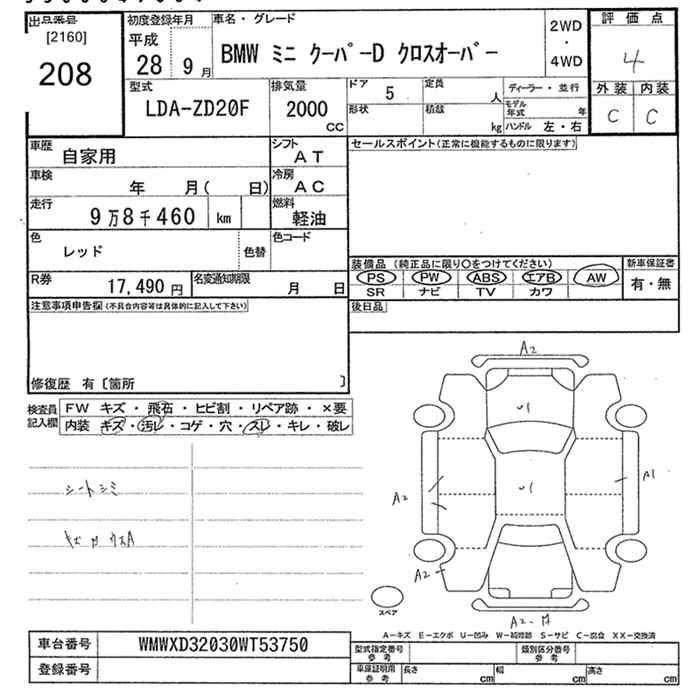 出品番号 初度登録年月 車名・グレード 評価点
[2160] 平成
208 28 9月 BMW ミニ クーパーD クロスオーバー 2WD ・ 4WD 4
外装 内装
型式 排気量 ドア 5 定員 人 ディーラー・並行 C C
LDA-ZD20F 2000 cc 形状 積載 kg モデル年式 年
ハンドル 左・右
車歴 自家用 シフト AT セールスポイント(正常に機能するものに限ります)
車検 年 月( 日) 冷房 AC
走行 9万8千460 km 燃料 軽油
色 レッド 色替 色コード
装備品 (純正品に限り○をつけてください) 新車保証書
PS PW ABS エアB AW 有・無
SR ナビ TV カワ
R券 17,490円 名変通知期限 月 日
注意事項申告欄(不具合内容等は具体的に記入して下さい) 後日品
修復歴 有〔箇所 〕
検査員記入欄 FW キズ・飛石・ヒビ割・リペア跡・×要
内装 キズ・汚レ・コゲ・穴・スレ・キレ・破レ
シートシミ
A2
U1
U1
A2
A1
A2
A2
スペア
A-キズ E-エクボ U-凹み W-補修跡 S-サビ C-腐食 XX-交換済
車台番号 WMWXD32030WT53750 型式指定番号 参考 類別区分番号 参考
登録番号 車庫証明用 参考 長さ cm 幅 cm 高さ cm